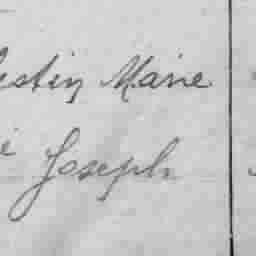 estin Marie
Joseph